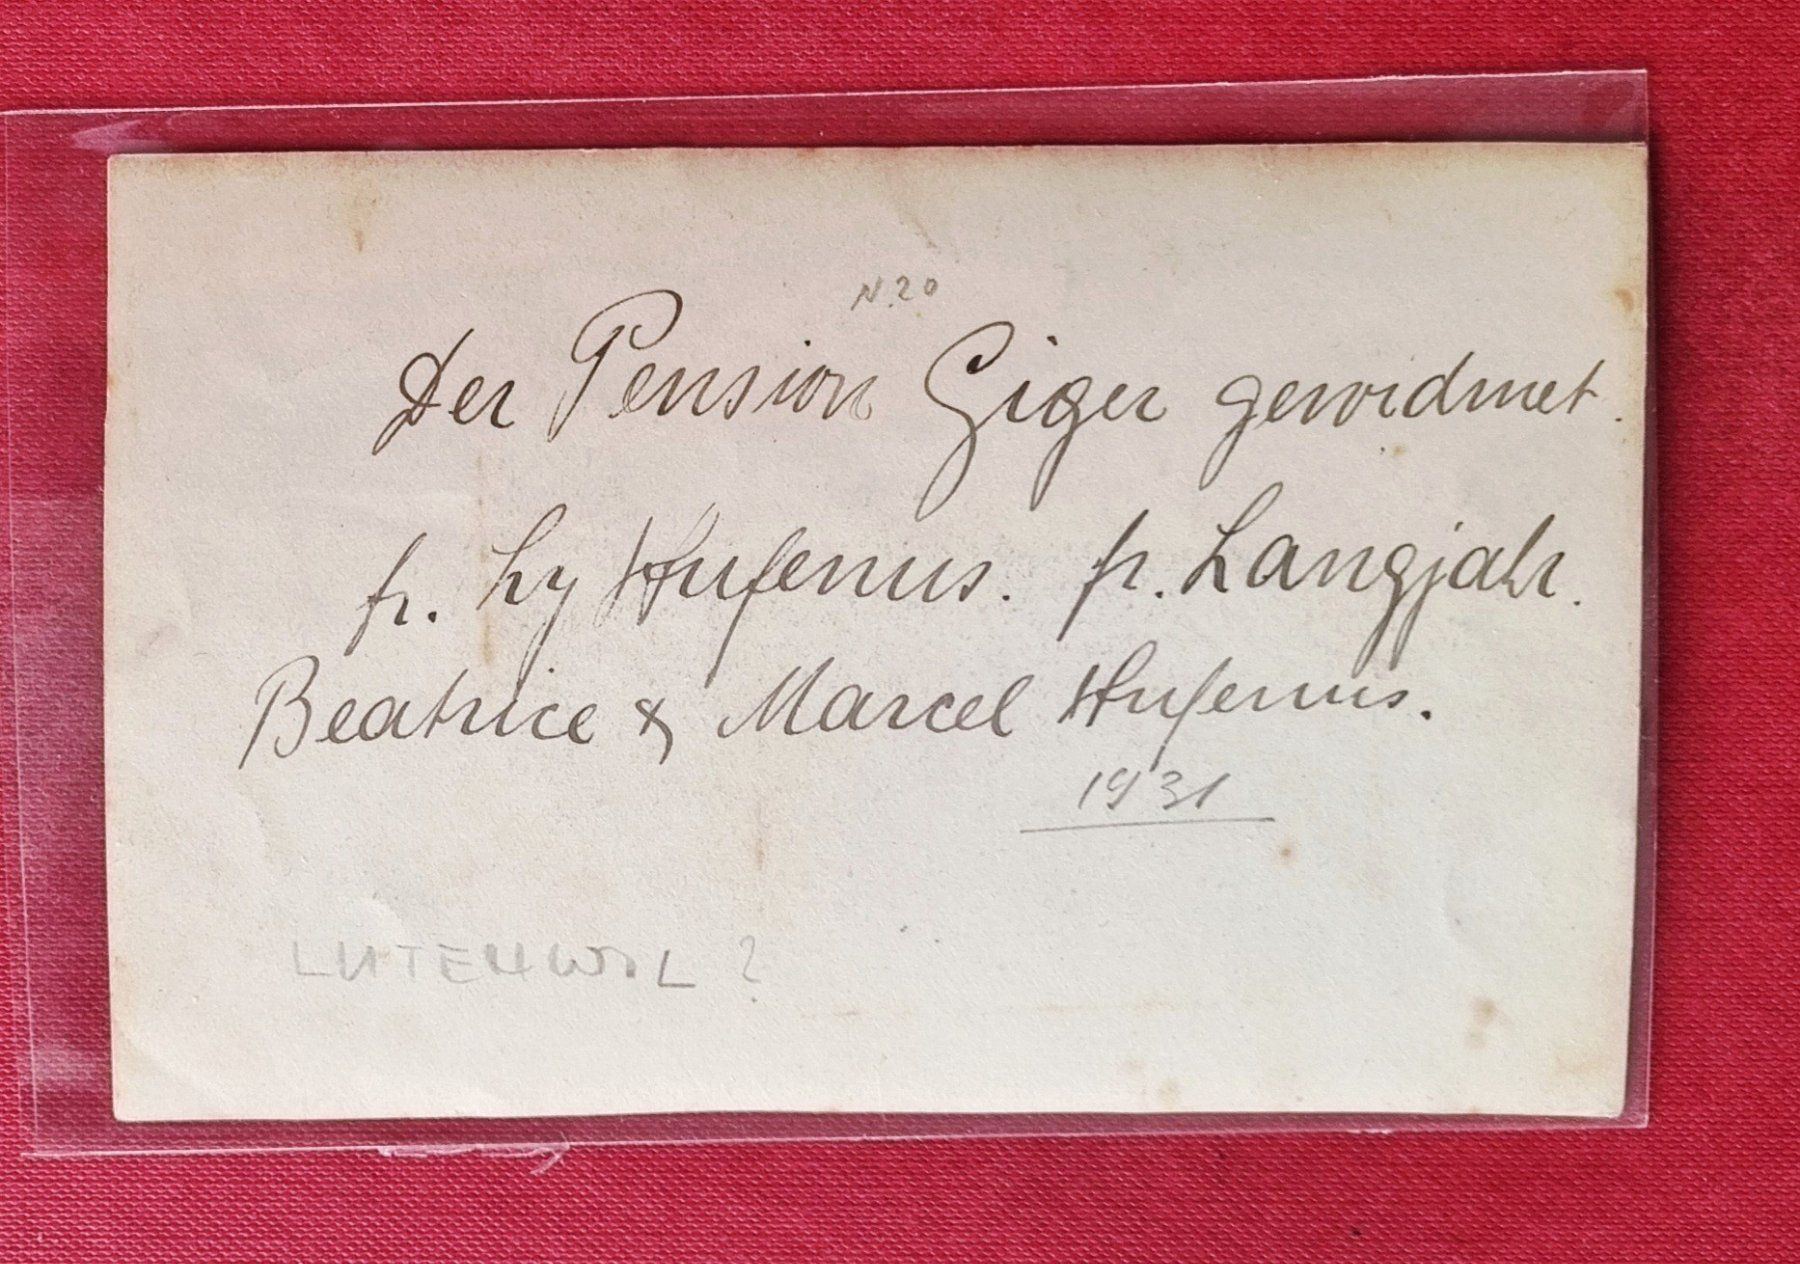 N. 20
Der Pension Giger gewidmet.
fr. Hy Hufenus. fr. Langjahr.
Beatrice & Marcel Hufenus.
1931
LUTENWIL ?